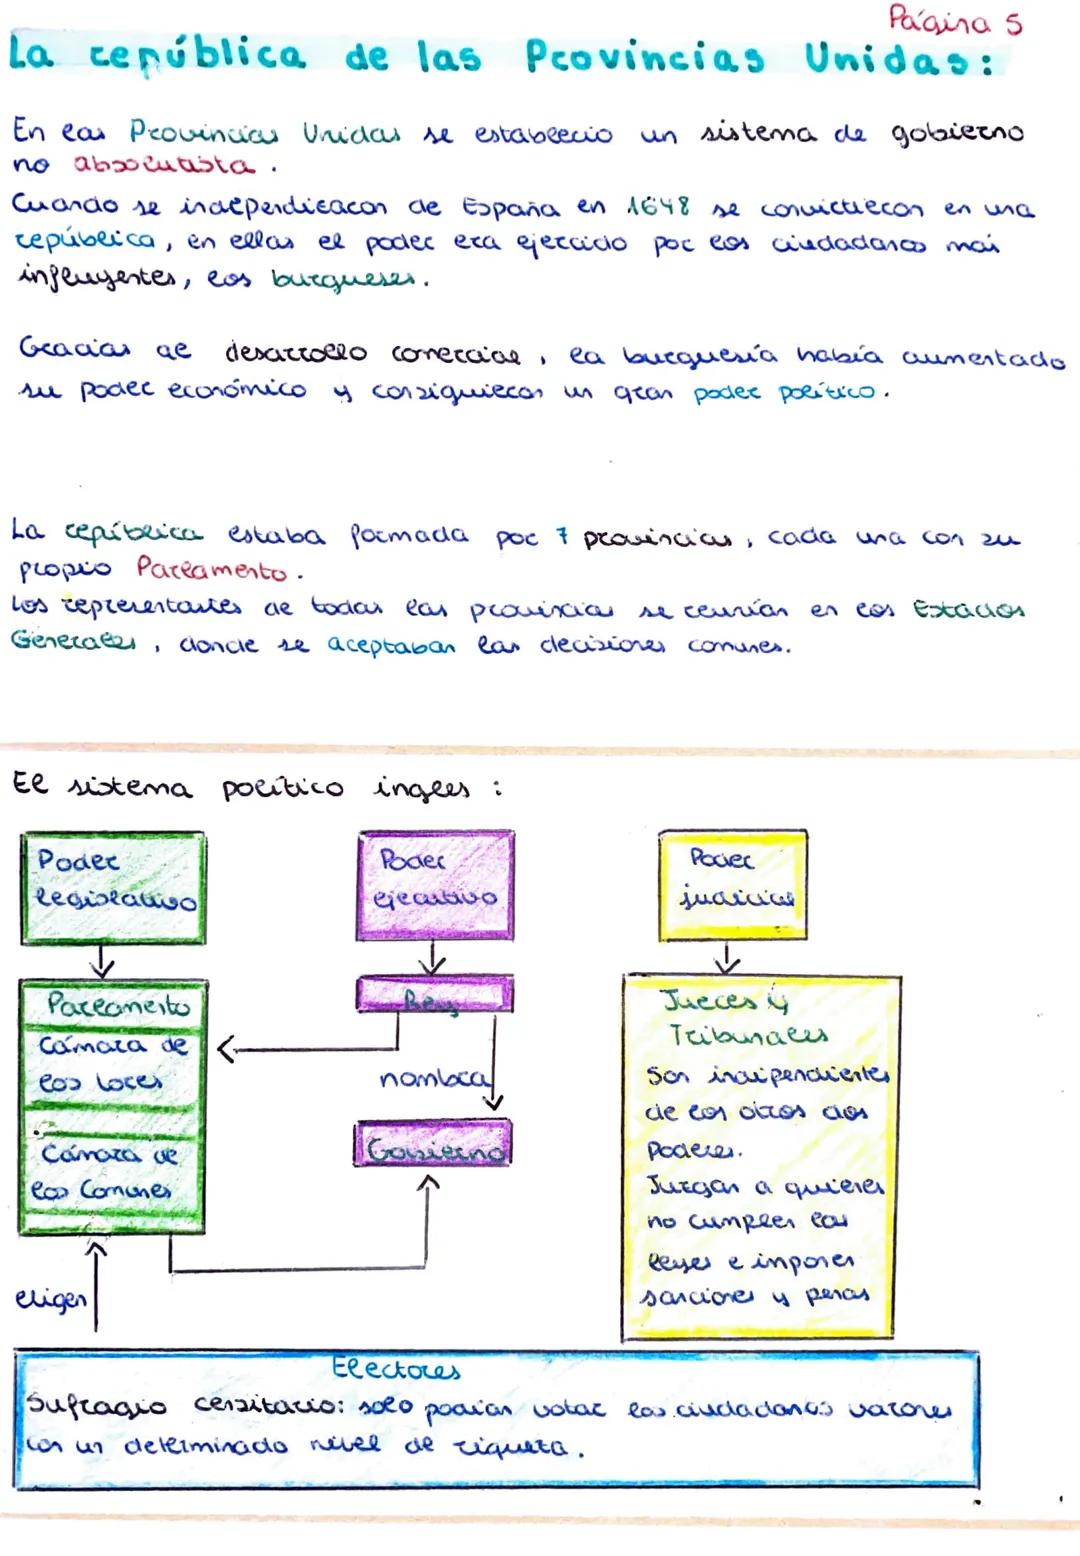 Página 5
La república de las Provincias Unidas:
En las Provincias Unidas se establecio un sistema de gobierno
no absolutista.
Cuando se independizaron de España en 1648 se convirtieron en una
república, en ellas el poder era ejercido por los ciudadanos mas
influyentes, los burgueses.
Gracias al desarrollo comercial, la burguesía había aumentado
su poder económico y consiguieron un gran poder político.
La república estaba formada por 7 provincias, cada una con su
propio Parlamento.
Los representantes de todas las provincias se reunían en los Estados
Generales, donde se aceptaban las decisiones comunes.
El sistema político ingles :
Poder
legislativo
Poder
ejecutivo
Poder
judicial
Parlamento
Cámara de
los lores
Cámara de
los Comunes
Rey
nombra
Gobierno
Jueces y
Tribunales
Son indipendientes
de los otros dos
Poderes.
Juzgan a quienes
no cumplen las
leyes e imponen
sanciones y penas
eligen
Electores
Sufragio censitario: solo podian votar los ciudadanos varones
con un determinado nivel de riqueza.